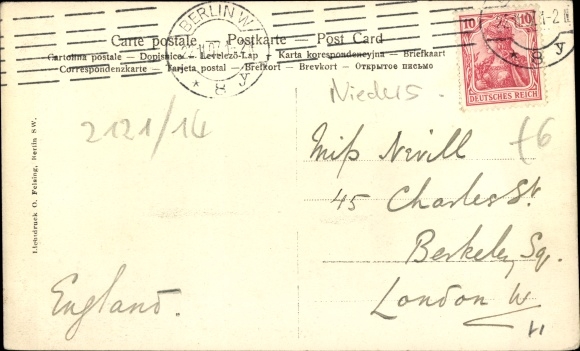 Carte postale – Postkarte – Post Card
Cartolina postale – Dopisnice – Levelező-Lap – Karta korespondencyjna – Briefkaart
Correspondenzkarte – Tarjeta postal – Brefkort – Brevkort – Открытое письмо
BERLIN W
* 8 y
10 10
DEUTSCHES REICH
1-2 N
* 8 y
2121/14
£6
Miss Nevill
45 Charles St.
Berkeley Sq.
London W
England.
Lichtdruck O. Felsing, Berlin SW.